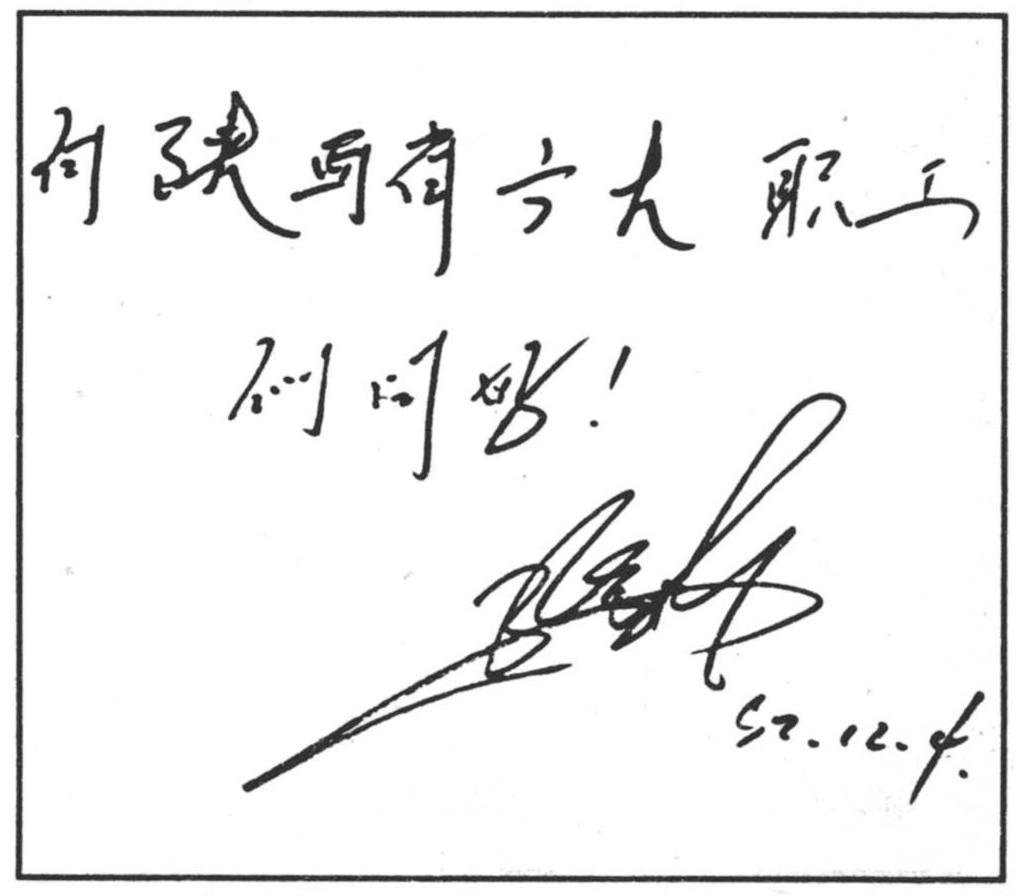 向陕西省广大职工
们问好!
12.4.